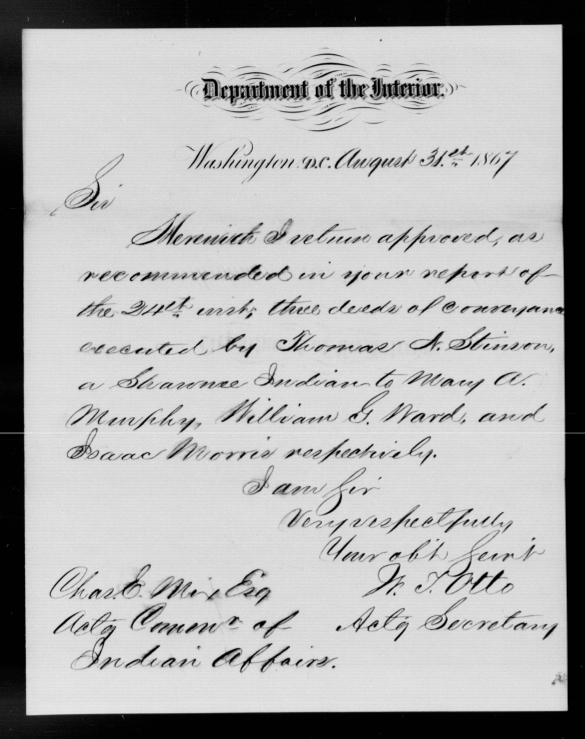 Department of the Interior.
Washington D.C. August 31.st 1867
Sir
Herewith I return approved, as
recommended in your report of
the 24th inst, three deeds of conveyance
executed by Thomas N. Stinson,
a Shawnee Indian to Mary A.
Murphy, William G. Ward, and
Isaac Morris respectively.
I am Sir
Very respectfully
Your obt Servt
W. T. Otto
Actg Secretary
Chas. E. Mix Esq
Actg Commr of
Indian Affairs.